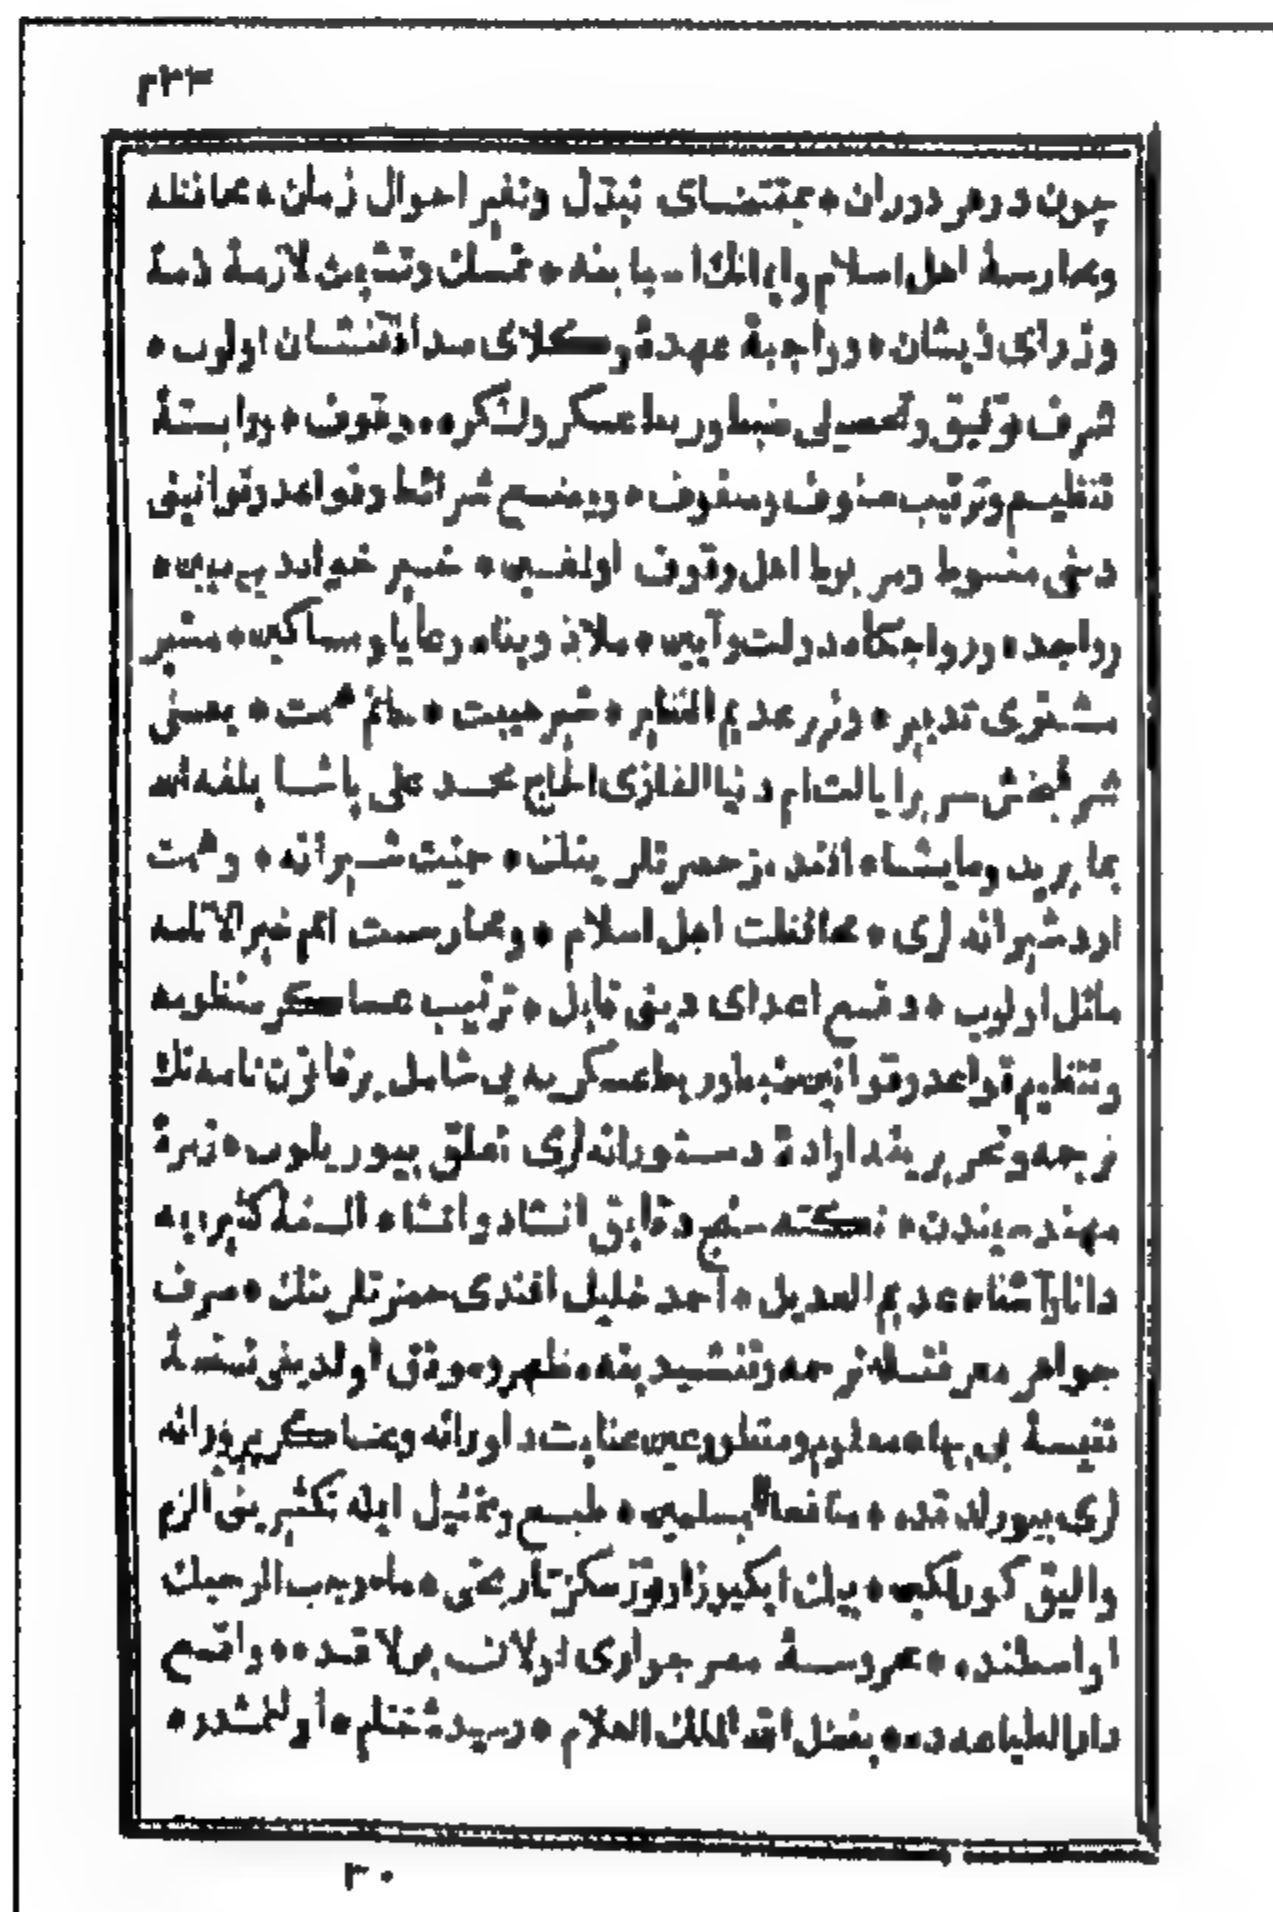 ٢٣٣
چون در هر دوران * بمقتضای تبدل وتغیر احوال زمان * محافظه
ومحارسهٔ اهل اسلام وایمانك اسبابنه * تمسك وتشبث لازمهٔ ذمهٔ
وزرای ذیشان * وواجبهٔ عهدهٔ وكلای صداقتنشان اولوب *
شرف توفیق وتحصیلی ضبط وربط عسكر ولشكره * وقوف * ووابستهٔ
تنظیم وترتیب صنوف وصفوف * ووضع شرائط وقواعد وقوانین
دخی منوط ومربوط اهل وقوف اولمغین * خدیو
دولت وآیین * ملاذ وپناه رعایا ومساكین * مشیر
مشتری تدبیر * وزیر عدیم النظیر * شیر هیبت * حاتم همت * یعنی
شرفبخش سریر ایالت ام دنیا الغازی الحاج محمد علی پاشا بلغه الله
بما یرید ومایشاء افندمز حضرتلرینك * حمیت شیرانه * وهمت
اردشیرانه لری * محافظت اهل اسلام * ومحارست امم خیر الانامه
مائل اولوب * دفع اعدای دین قابل * ترتیب عساكر منظومه
وتنظیم قواعد وقوانین ضبط وربط عسكریه یی شامل بر قانون نامه نك
ترجمه وتحریرینه ارادهٔ دستورانه لری تعلق بیوریلوب * زمرهٔ
مهندسیندن * نكته سنج دقایق انشاد وانشاء السنهٔ كثیره یه
دانا وآشنا * عدیم العدیل * احمد خلیل افندی حضرتلرینك * صرف
جواهر معرفتله ترجمه وتنشیدینه * اولدیغی نسخهٔ
نفیسهٔ بی بها * معلوم ومنظور عین عنایت داورانه وعساكر پرورانه
لری بیورلدقده * منافعا للمسلمین * طبع وتمثیل ایله تكثیرینی الزم
والیق كورلمكین * بیك ایكیوز اوتوز سكز تاریخنی * ماه رجب الرجبك
اواسطنده * محروسهٔ مصر جواری اولان بولاقده * واقع
دار الطباعه ده * بفضل الله الملك العلام * رسیدهٔ ختام * اولمشدر *
٣٠